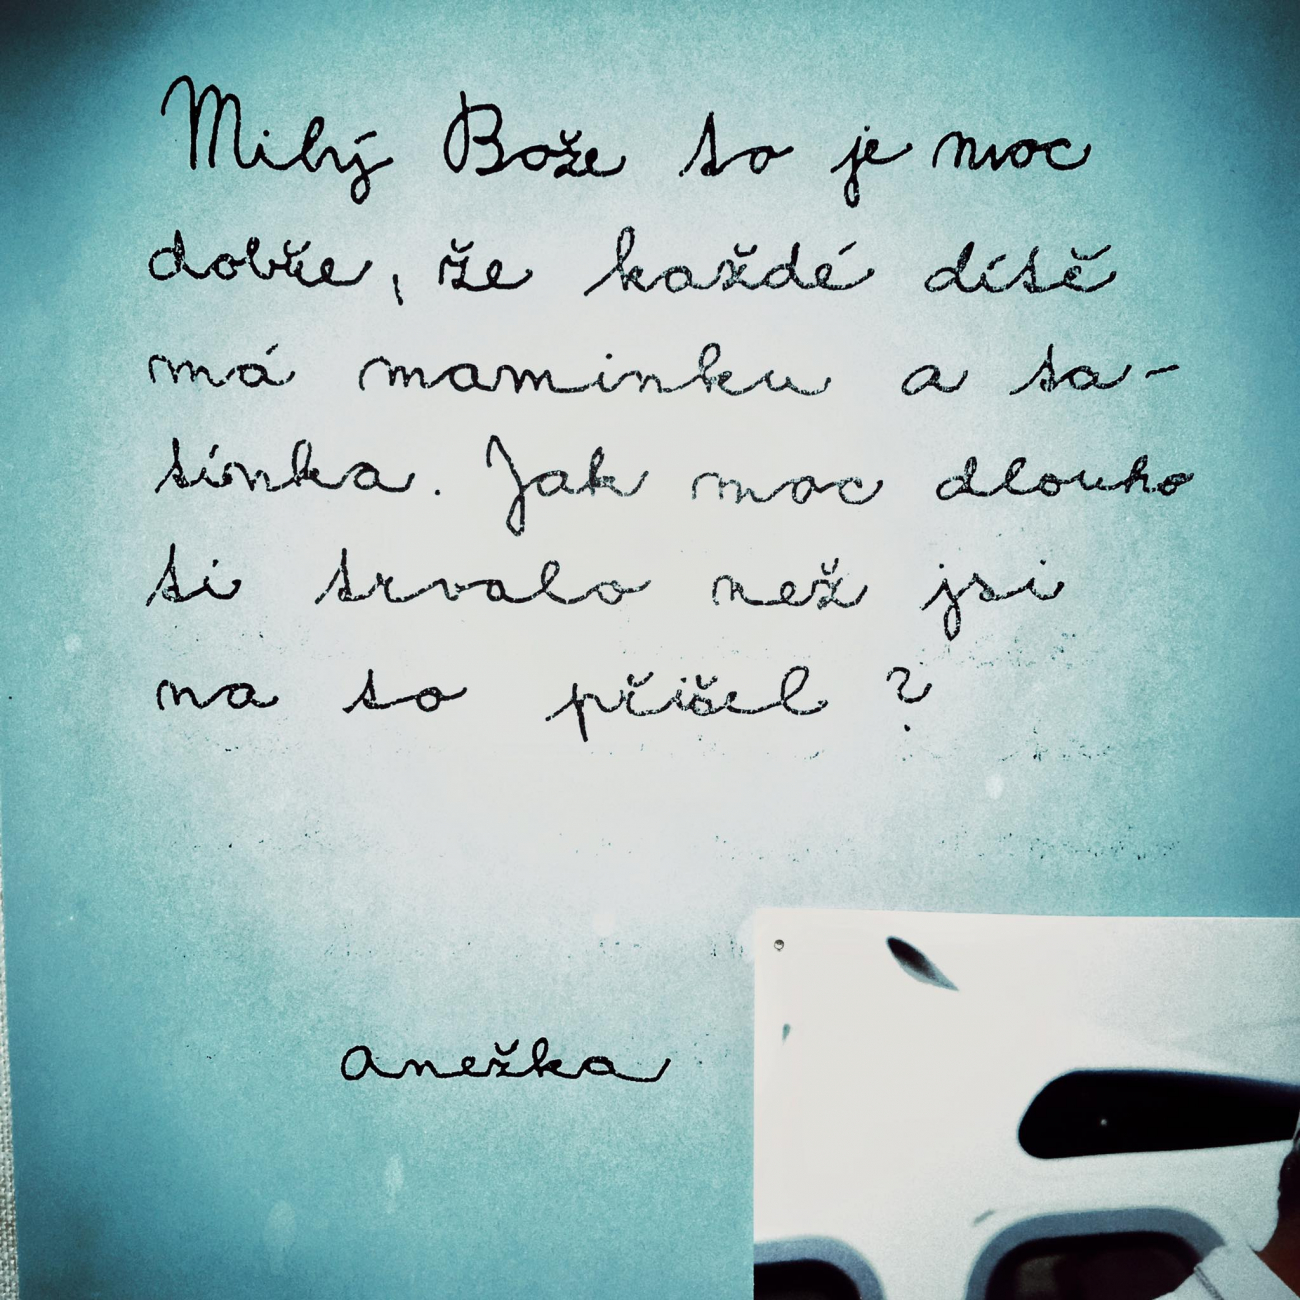 Milý Bože to je moc
dobře, že každé dítě
má maminku a ta-
tínka. Jak moc dlouho
ti trvalo než jsi
na to přišel ?
Anežka